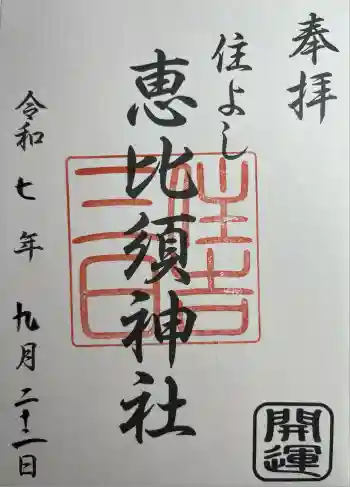 奉拝
住よし
恵比須神社
住吉
令和七年 九月二十二日
開運